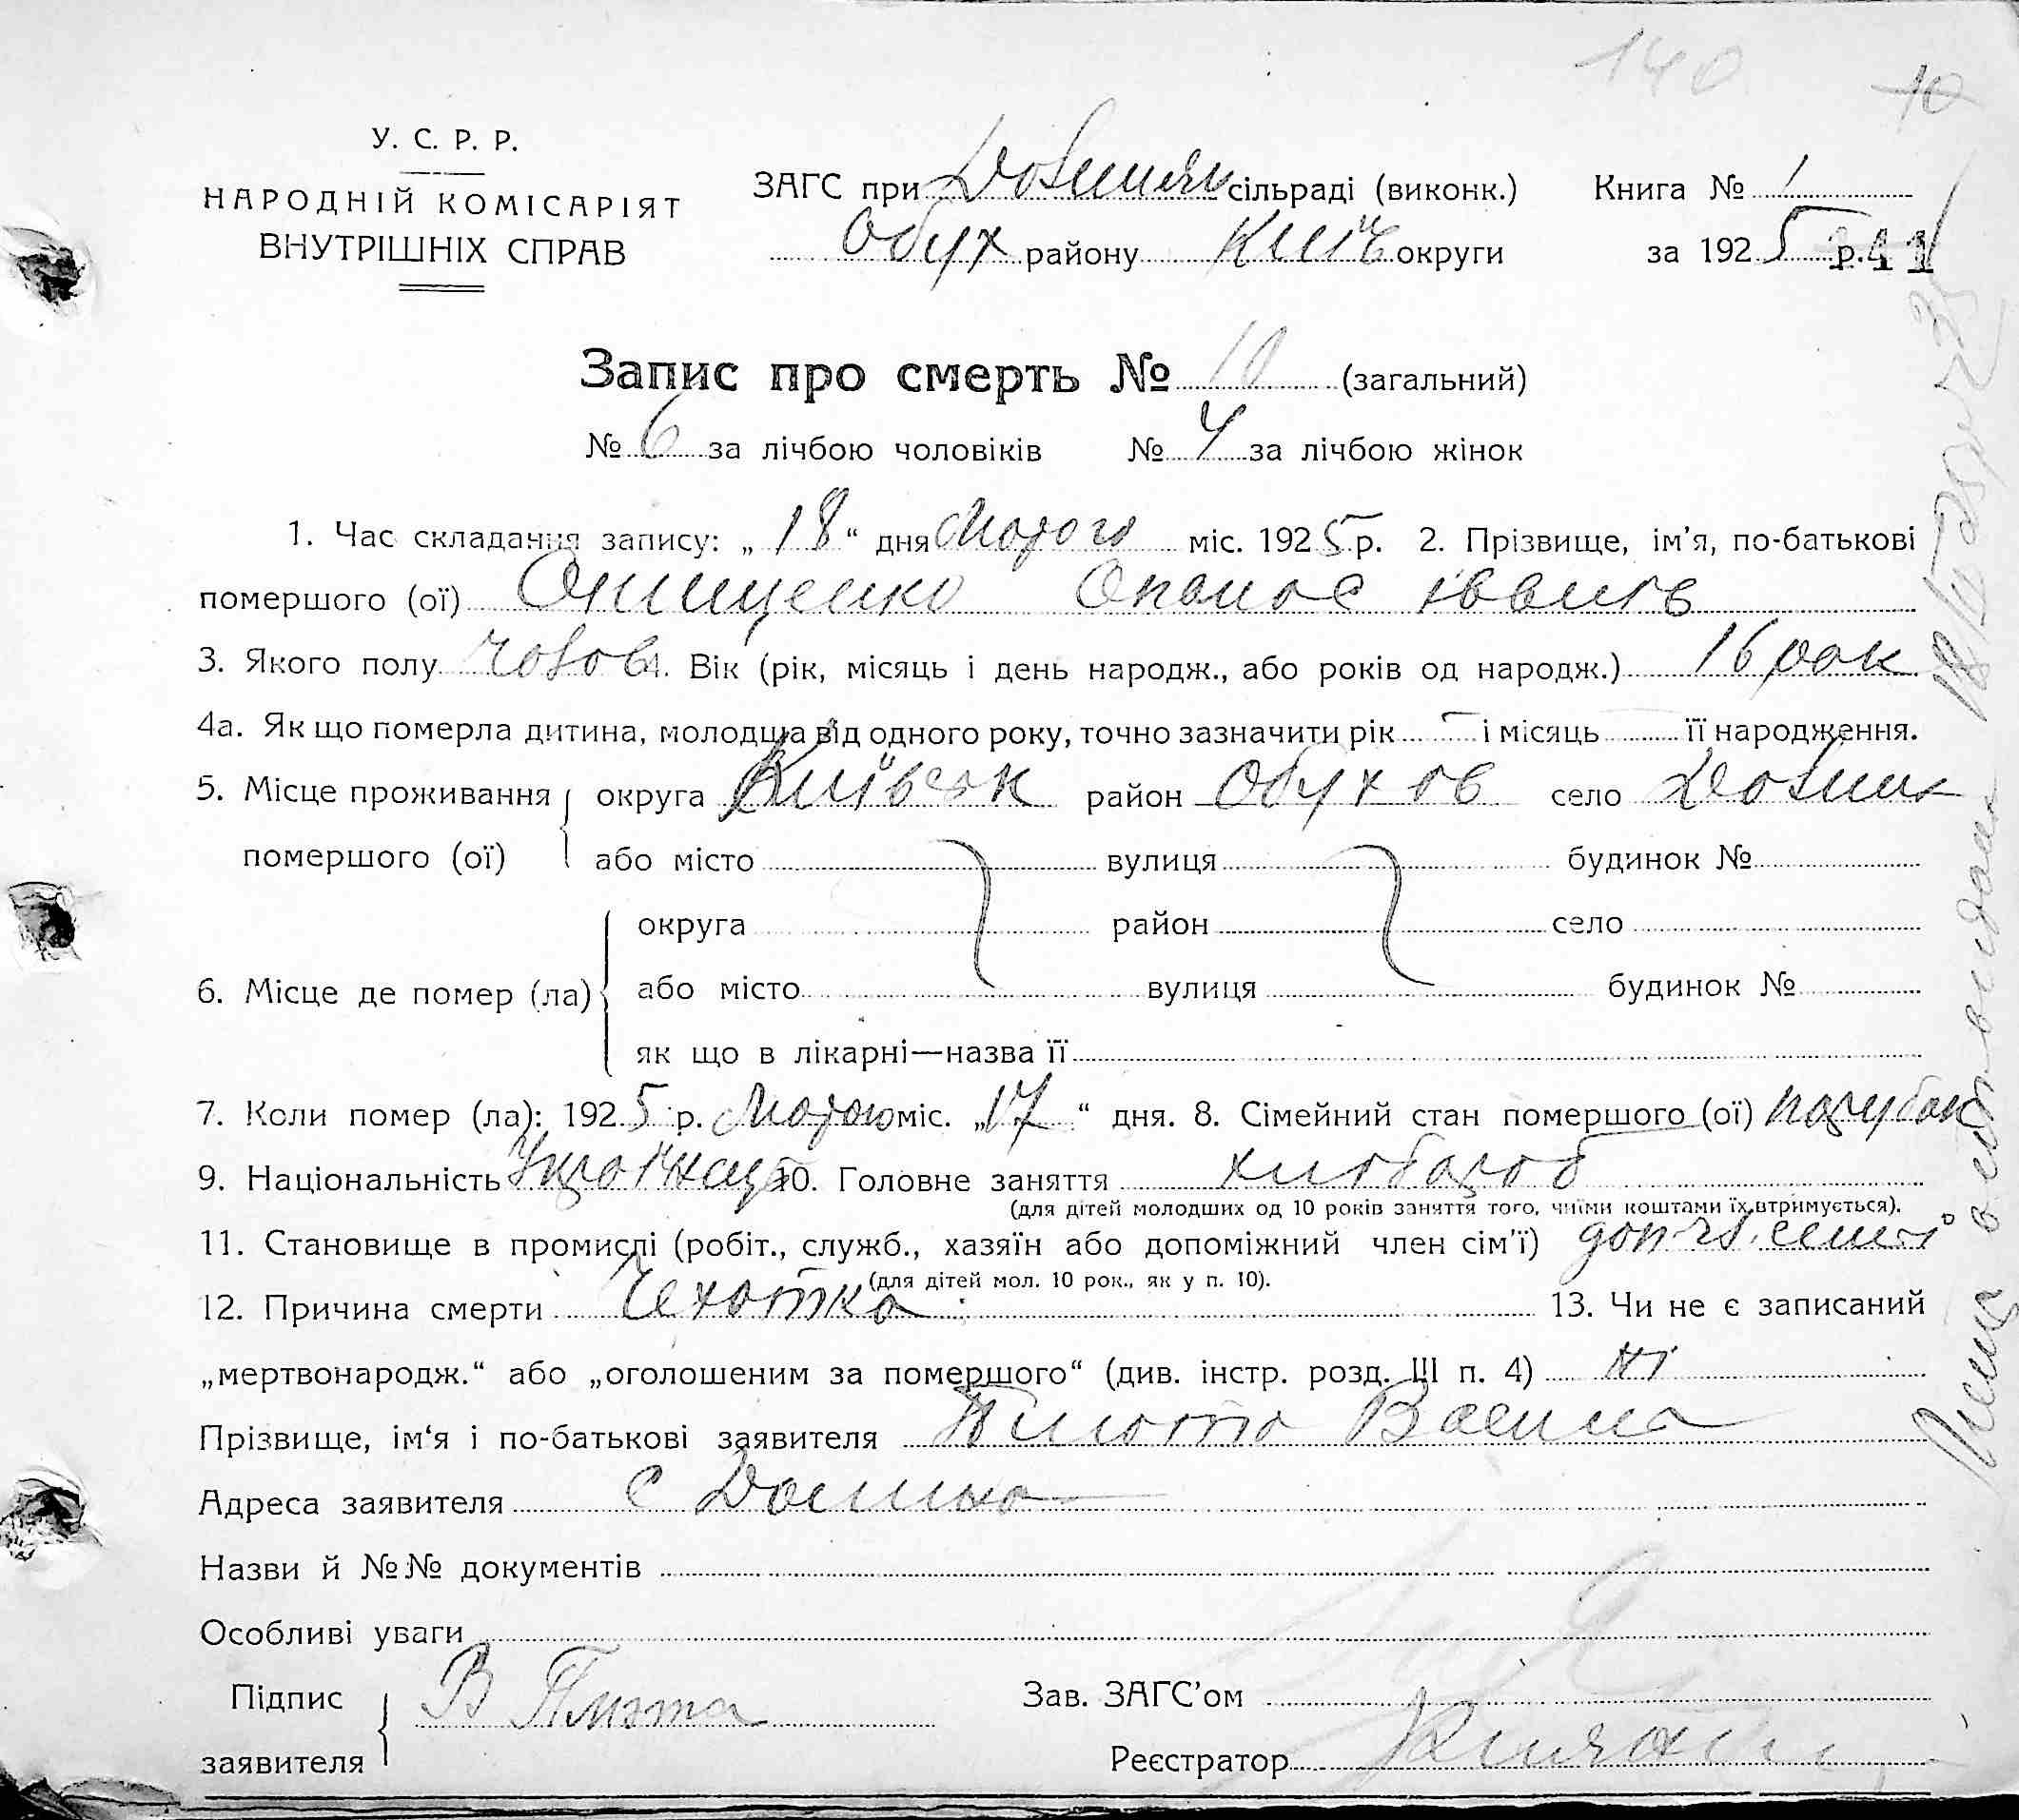 140 10
У. С. Р. Р.
НАРОДНІЙ КОМІСАРІЯТ
ВНУТРІШНІХ СПРАВ
ЗАГС при сільраді (виконк.) Книга № 1
Обух району Київ округи за 1925 р. 41
Запис про смерть № 10 (загальний)
№ 6 за лічбою чоловіків № 4 за лічбою жінок
1. Час складання запису: „ 18 “ дня Лютого міс. 1925 р. 2. Прізвище, ім'я, по-батькові
помершого (ої) Онищенко Опанас Іванів
3. Якого полу чолов 4. Вік (рік, місяць і день народж., або років од народж.) 16 рок
4а. Як що померла дитина, молодша від одного року, точно зазначити рік — і місяць її народження.
5. Місце проживання округа Київськ район Обухов село
помершого (ої) або місто вулиця будинок №
округа район село
6. Місце де помер (ла) або місто вулиця будинок №
як що в лікарні—назва її
7. Коли помер (ла): 1925 р. Лютого міс. „ 17 “ дня. 8. Сімейний стан помершого (ої) парубок
9. Національність 10. Головне заняття хлібороб
(для дітей молодших од 10 років заняття того, чиїми коштами їх втримується).
11. Становище в промислі (робіт., служб., хазяїн або допоміжний член сім'ї) доп чл. семї
(для дітей мол. 10 рок., як у п. 10).
12. Причина смерти Чехотка 13. Чи не є записаний
„мертвонародж.“ або „оголошеним за помершого“ (див. інстр. розд. III п. 4) ні
Прізвище, ім'я і по-батькові заявителя
Адреса заявителя с
Назви й №№ документів
Особливі уваги
Підпис В Зав. ЗАГС'ом
заявителя Реєстратор